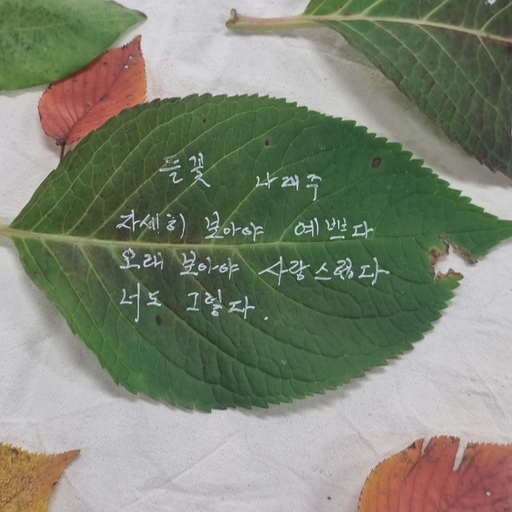 들꽃 나태주
자세히 보아야 예쁘다
오래 보아야 사랑스렇다
너도 그렇다.